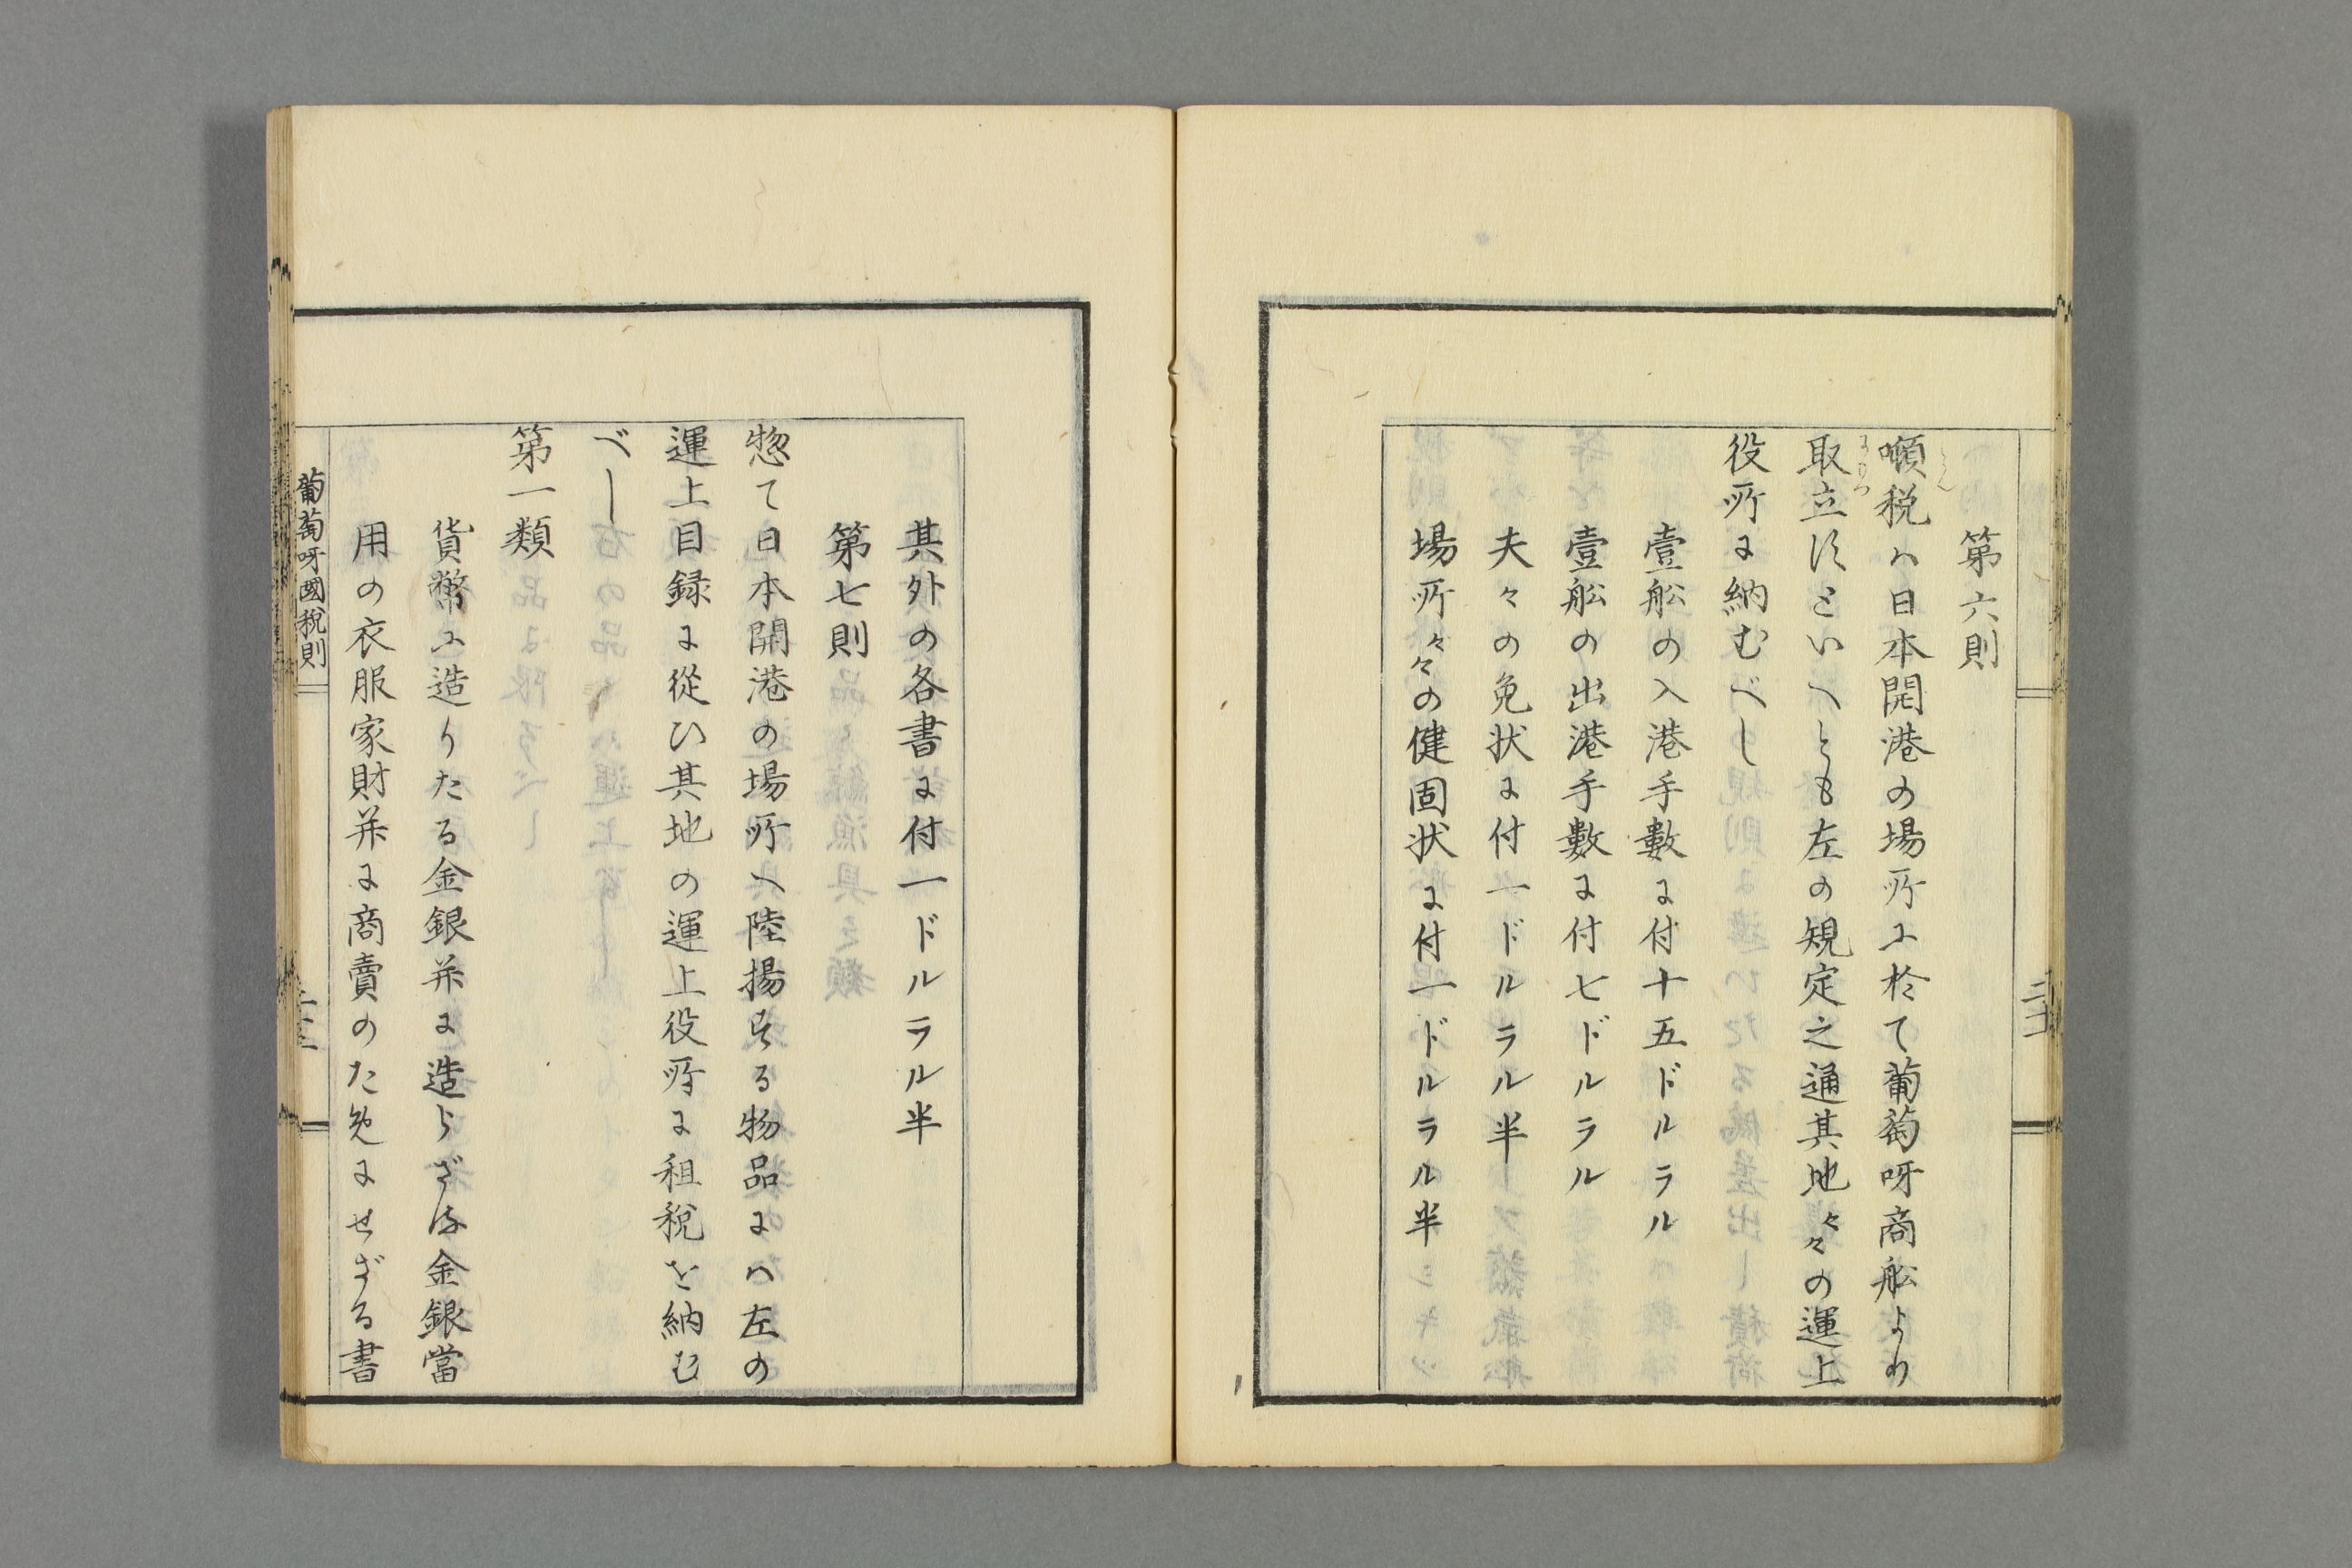 第六則
噸税ハ日本開港の場所ニ於て葡萄呀商舩より
取立ずといへとも左の規定之通其地々々の運上
役所に納むべし
壹舩の入港手數に付十五ドルラル
壹舩の出港手數に付七ドルラル
夫々の免状に付一ドルラル半
場所々々の健固状に付一ドルラル半
其外の各書に付一ドルラル半
第七則
惣て日本開港の場所へ陸揚する物品にハ左の
運上目録に從ひ其地の運上役所に租税を納む
べし
第一類
貨幣に造りたる金銀并に造らざる金銀當
用の衣服家財并に商賣のために せざる書
葡萄呀國税則